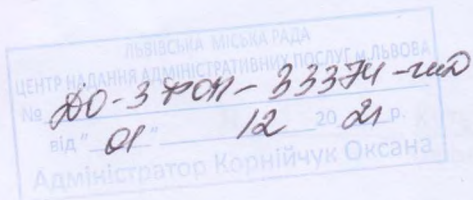 ЛЬВІВСЬКА МІСЬКА РАДА
ЦЕНТР НАДАННЯ АДМІНІСТРАТИВНИХ ПОСЛУГ м.ЛЬВОВА
№ ДО-3ФОП-33374-
від "01" 12 2021 р.
Адміністратор Корнійчук Оксана